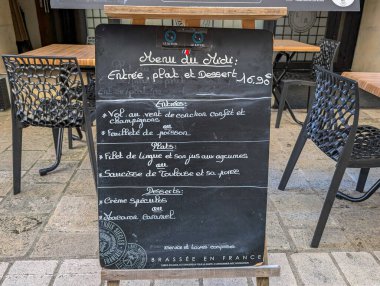 Menu du Midi:
Entrée, plat et Dessert 16,9€
Entrées:
* Vol au vent de cochon confit et
champignons
ou
* Feuilleté de poisson
Plats:
* Filet de lingue et son jus aux agrumes
ou
* Saucisse de Toulouse et sa purée
Desserts:
* Crème spéculos
ou
caramel
Service et taxes comprises
BRASSÉE EN FRANCE